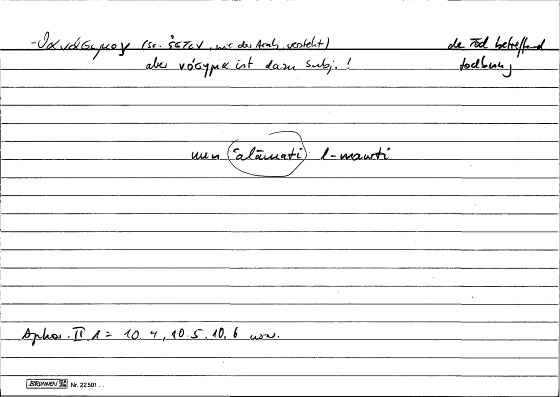 -θανάσιμον (sc. ἐστιν, wie der Arab. versteht) de Tod betreffend
aber νόσημα ist dazu subj.! todbring
men ʿalāmati l-mawti
Aphor. II 1 = 10. 4, 10 5. 10, 6 usw.
BRUNNEN Nr. 22501